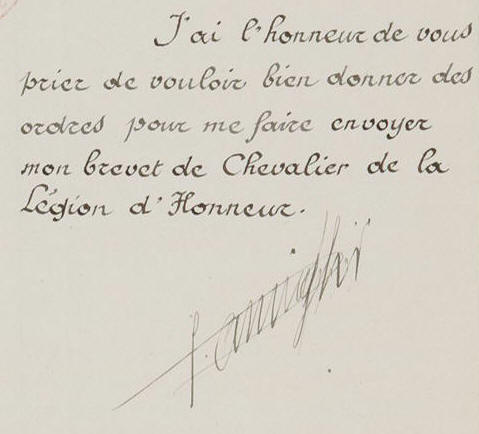 J'ai l'honneur de vous
prier de vouloir bien donner des
ordres pour me faire envoyer
mon brevet de Chevalier de la
Légion d'Honneur.